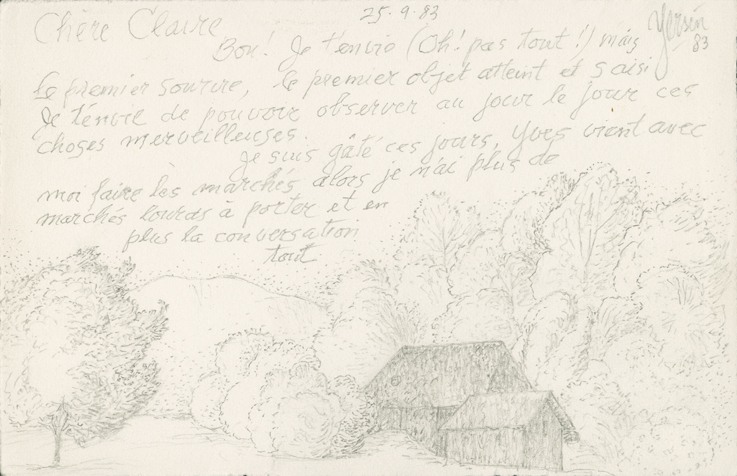 25-9-83
Chère Claire
Yersin
83
Bon! Je t'envie (Oh! pas tout!) mais
le premier sourire, le premier objet atteint et saisi
Je t'envie de pouvoir observer au jour le jour ces
choses merveilleuses.
Je suis gâté ces jours, Yves vient avec
moi faire les marchés alors je n'ai plus de
marchés lourds à porter et en
plus la conversation
tout